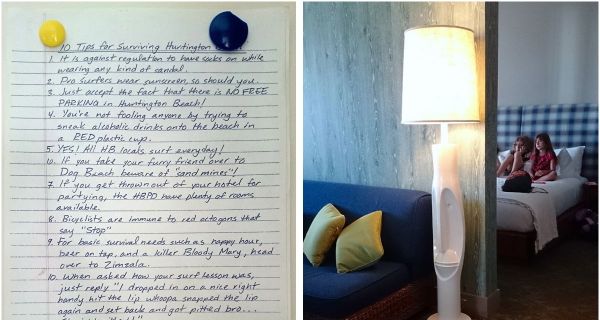 10 Tips for Surviving Huntington
1. It is against regulation to have socks on while
wearing any kind of sandal.
2. Pro Surfers wear sunscreen, so should you.
3. Just accept the fact that there is NO FREE
PARKING in Huntington Beach!
4. You're not fooling anyone by trying to
sneak alcoholic drinks onto the beach in
a RED plastic cup.
5. YES! All HB locals surf everyday!
10. If you take your furry friend over to
Dog Beach beware of "sand mines"!
7. If you get thrown out of your hotel for
partying, the HBPD have plenty of rooms
available.
8. Bicyclists are immune to red octogons that
say "Stop"
9. For basic survival needs such as happy hour,
beer on tap, and a killer Bloody Mary, head
over to Zimzala.
10. When asked how your surf lesson was,
just reply "I dropped in on a nice right
handy hit the lip whoopa snapped the lip
again and set back and got pitted bro...